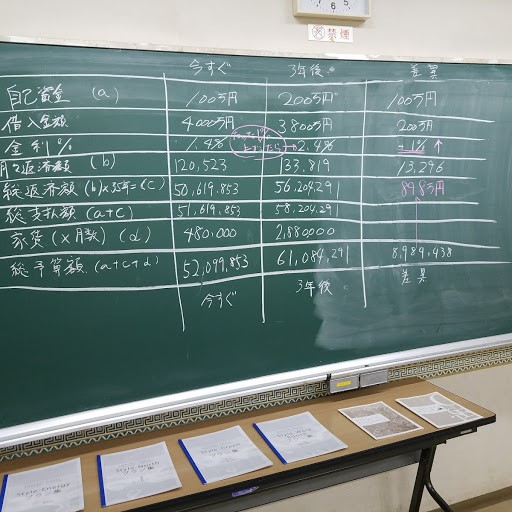 6 5
禁煙
今すぐ 3年後 差異
自己資金 (a) 100万円 200万円 100万円
借入金額 4000万円 3800万円 200万円
金利% 1.4% 2.4% +1% ↑
月々返済額 (b) 120,523 133,819 13,296
総返済額 (b)×35年=(c) 50,619,853 56,204,291 898万円
総支払額 (a+c) 51,619,853 58,204,291
家賃 (×月数) (d) 480,000 2,880,000
総予算額 (a+c+d) 52,099,853 61,084,291 8,984,438
今すぐ 3年後 差異
Style-Energy
プラン集
Style-North
プラン集
プラン集
プラン集